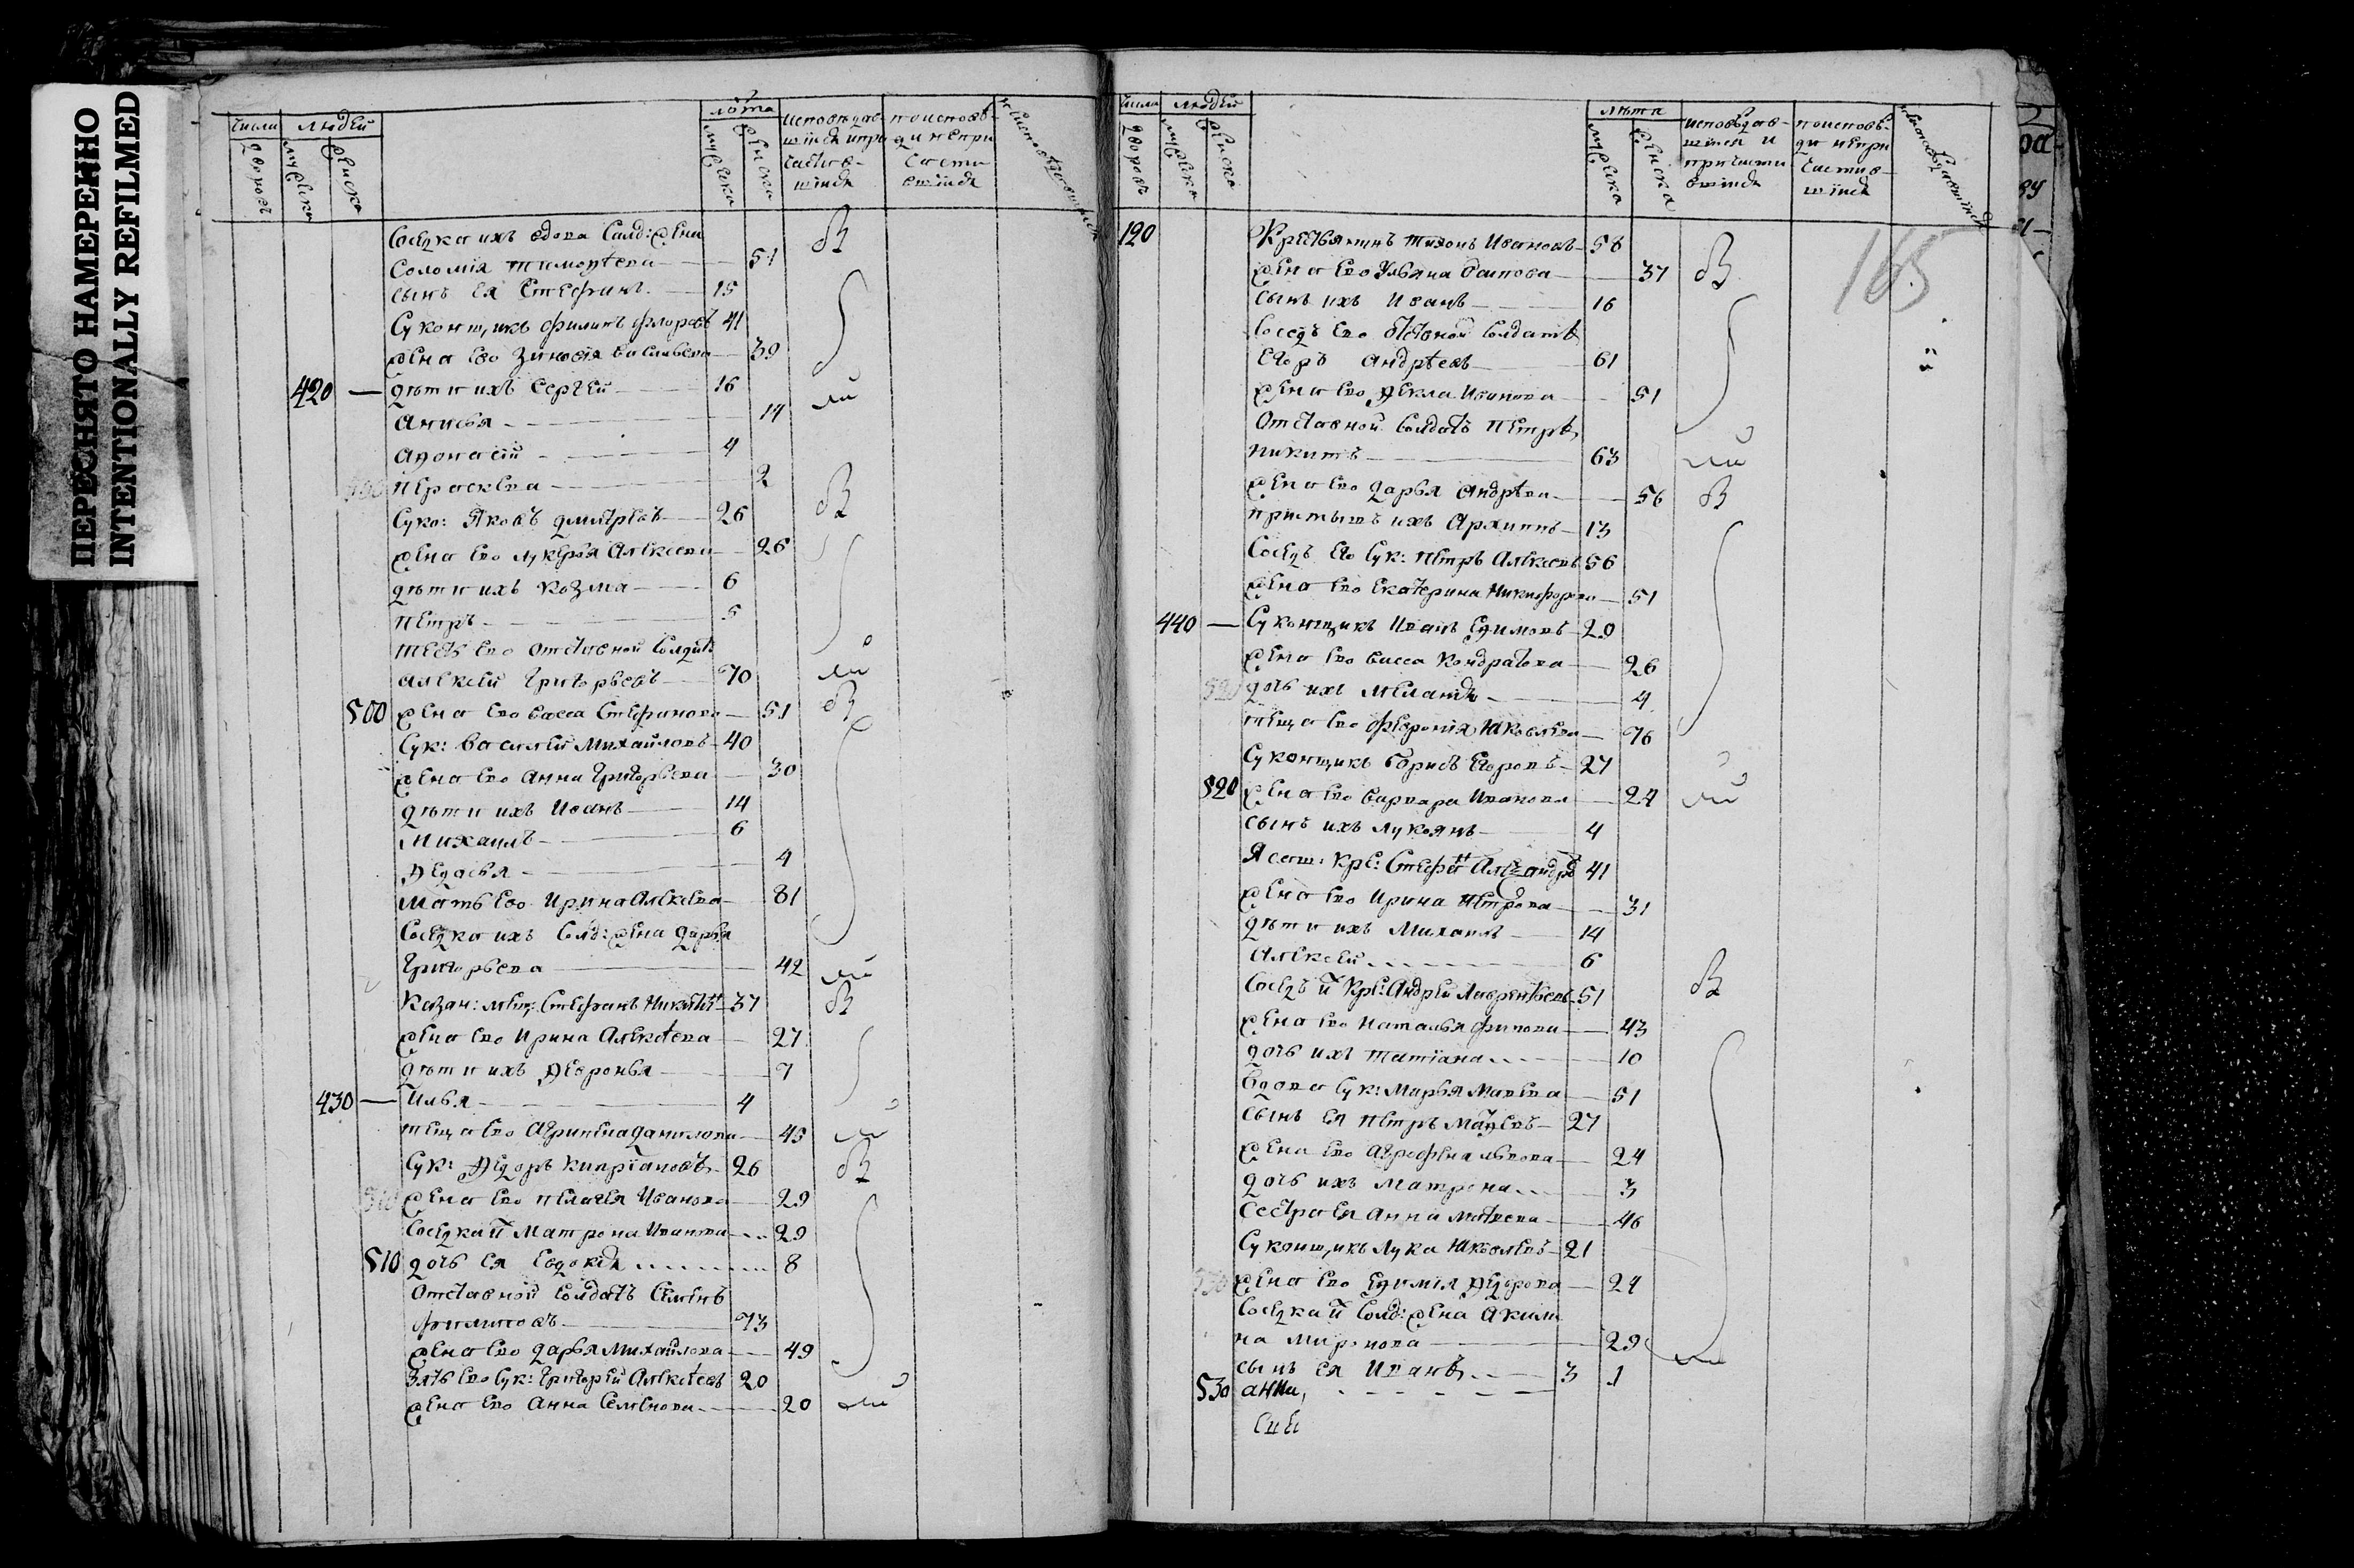 ПЕРЕСНЯТО НАМЕРЕННО
INTENTIONALLY REFILMED
числа людей лѣта исповѣдав- по исповѣ-
дворовъ мужеска женска мужеска женска
шїися и при ди не при
частив- части
шїися вшїися
Соседка ихъ вдова Салд: жена
Соломїя Тимоѳеева 51
сынъ ея Стефанъ 15
Суконщикъ Филипъ Флоровъ 41
жена ево Зиновѣя Васильева 39
420 дѣти ихъ Сергѣй 16
Анисья 14
Афонасїй 4
Параскева 2
Суко: Яковъ Дмитрѣевъ 26
жена ево Лукерья Алексеева 26
дѣти ихъ Козма 6
Петръ 5
тесть ево отставной солдатъ
Алексей Григорьевъ 70
500 жена ево Васса Стефанова 51
Сук: Василей Михайловъ 40
жена ево Анна Григорьева 30
дѣти ихъ Иванъ 14
Михаилъ 6
Ѳедосья 4
мать ево Ирина Алексева 81
Соседка ихъ Солд: жена Дарья
Григорьева 42
Казан: мещ: Стефанъ Никитин 37
жена ево Ирина Алексѣева 27
дѣти ихъ Ѳевронья 7
430 Илья 4
теща ево Агрипена Данилова 45
Сук: Ѳедоръ Кипрїановъ 26
жена ево Пелагея Иванова 29
Соседка й Матрона Иванова 29
510 дочь ея Евдокїя 8
Отставной солдатъ Семенъ
Филиповъ 73
жена ево Дарья Михайлова 49
Зять ево сук: Григорей Алексѣевъ 20
жена ево Анна Семенова 20
числа людей лѣта исповѣдав- по исповѣ-
дворовъ мужеска женска мужеска женска
шїися и ди не при
причасти частив-
вшїися шїися
165
120 Крестьянинъ Тихонъ Ивановъ 58
жена ево Ульяна Осипова 37
сынъ ихъ Иванъ 16
Соседъ ево отставной солдатъ
Егоръ Андрѣевъ 61
жена ево Ѳекла Иванова 51
Отставной солдатъ Петръ
Никитъ 63
жена ево Дарья Андрѣева 56
приемышъ ихъ Архипъ 13
Соседъ ево сук: Петръ Алексеевъ 56
жена ево Екатерина Никифорова 51
440 Суконщикъ Иванъ Ефимовъ 29
жена ево Васса Кондратьева 26
дочь ихъ Меланїя 4
теща ево Феѳронїя Яковлева 76
Суконщикъ Борисъ Егоровъ 27
520 жена ево Варвара Иванова 24
сынъ ихъ Лукоянъ 4
Ясаш: кре: Стефан Александров 41
жена ево Ирина Петрова 31
дѣти ихъ Михаилъ 14
Алексей 6
Соседъ й Кре: Андрей Лаврентьевъ 51
жена ево Наталья Филипова 43
дочь ихъ Татїана 10
Вдова сук: Марья Мавеева 51
сынъ ея Петръ 27
жена ево Агрофена Львова 24
дочь ихъ Матрона 3
Сестра ея Анна Матвеева 46
Суконщикъ Лука Яковлевъ 21
жена ево Ефимїя Ѳедорова 24
Соседка й Солд: жена Акили
на Миронова 29
сынъ ея Иванъ 3 1
530 Анна,